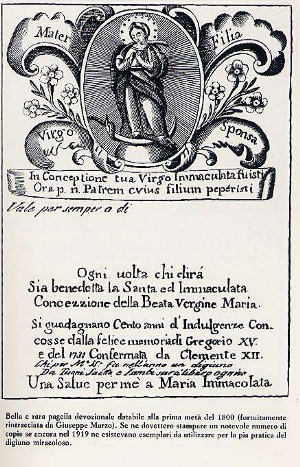 Mater
Filia
Virgo
Sponsa
In Conceptione tua Virgo Immaculata fuisti
Ora p. n. Patrem cuius filium peperisti
Vale per sempre a dì
Ogni uolta chi dirá
Sia benedetta la Santa ed Immaculata
Concezzione della Beata Vergine Maria.
Si guadagnano Cento anni d'Indulgenze Con-
cosse dalla felice memoria di Gregorio XV.
e del 1731 Confermata da Clemente XII.
Chi per fa nell'anno un digiuno
Da e sarà libero ognuno
Una Salue per me a Maria Immacolata
Bella e rara pagella devozionale databile alla prima metà del 1800 (fortuitamente
rintracciata da Giuseppe Murzo). Se ne dovettero stampare un notevole numero di
copie se ancora nel 1919 ne esistevano esemplari da utilizzare per la pia pratica del
digiuno miracoloso.